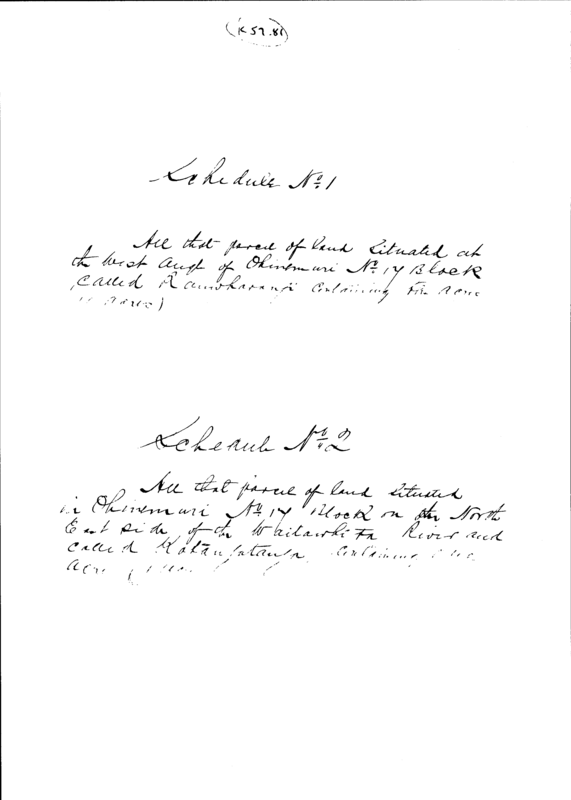 K 57.81
Schedule No 1
All that parcel of land Situated at
the West Angl of Ohinemuri No 17 Block
(called containing acre
acres)
Schedule No 2
All that parcel of land situated
in Ohinemuri No 17 Block on the North
East side of the River and
called containing
acre